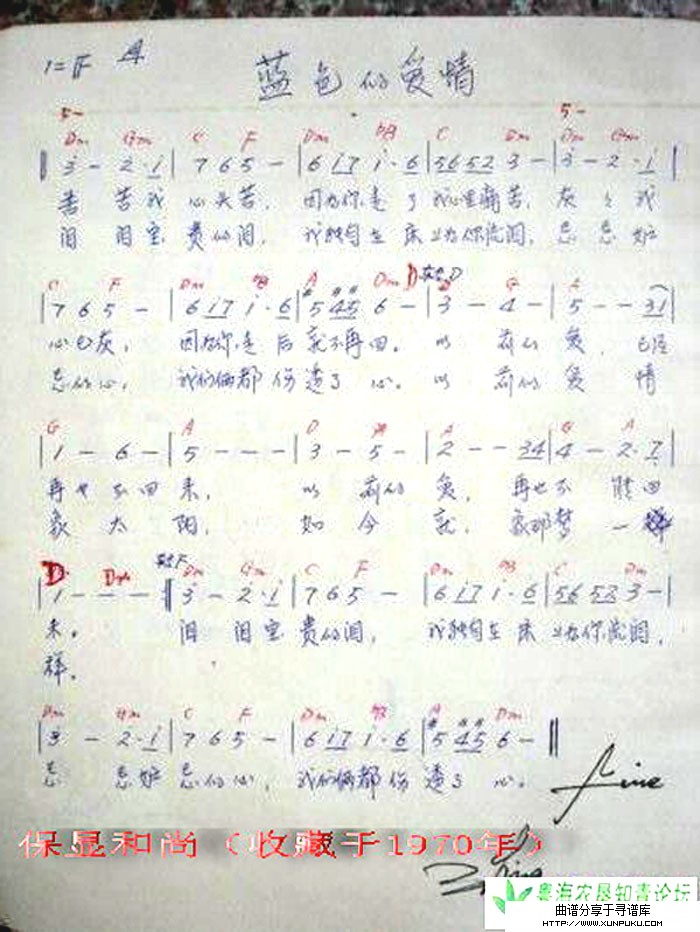 1=F 4
蓝色的爱情
5- 5-
Dm Gm C F Dm bB C Dm Dm Gm
‖ 3 - 2·1 | 7 6 5 - | 6 17 1·6 | 56 52 3 - | 3 - 2·1 |
苦 苦我 心头苦, 因为你走了我心里痛苦, 灰 灰我
泪 泪宝 贵的泪, 我独自在床上为你流泪, 忌 忌妒
C F Dm bB A Dm D 转D G A
| 7 6 5 - | 6 17 1·6 | #5 #4#5 6 - | 3 - 4 - | 5 - - 31 |
心已灰, 因为你走后就不再回。 以 前的 爱, 已经
忌的心, 我们俩都伤透了 心。 以 前的 爱 情
G A D A G A
| 1 - 6 - | 5 - - - | 3 - 5 - | 2 - - 34 | 4 - 2·7 |
再也不回 来, 以 前的 爱, 再也不 能回
象 太 阳, 如 今 就, 象那梦 一
D 转F Dm Gm C F Dm bB C Dm
| 1 - - - ‖ 3 - 2·1 | 7 6 5 - | 6 17 1·6 | 56 52 3 - |
来。 泪 泪宝 贵的泪, 我独自在床上为你流泪,
样。
Dm Gm C F Dm bB A Dm
| 3 - 2·1 | 7 6 5 - | 6 17 1·6 | #5 #4#5 6 - ‖
忌 忌妒 忌的心, 我们俩都伤透了 心。
Fine
保显和尚（收藏于1970年）
粤海农垦知青论坛
曲谱分享于寻谱库
HTTP://WWW.XUNPUKU.COM